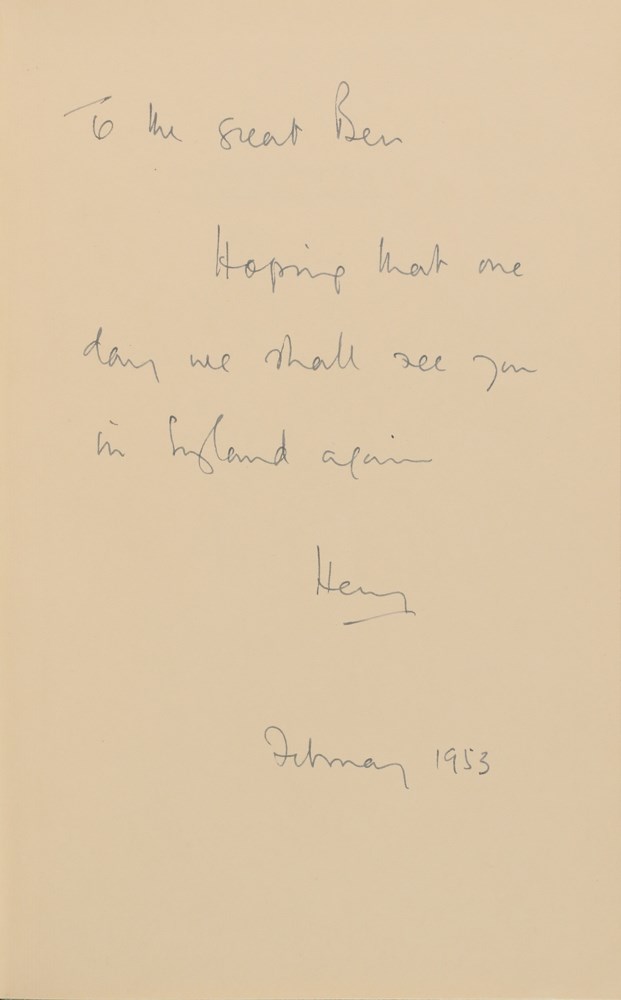 To the great Ben
Hoping that one
day we shall see you
in England again
Henry
February 1953